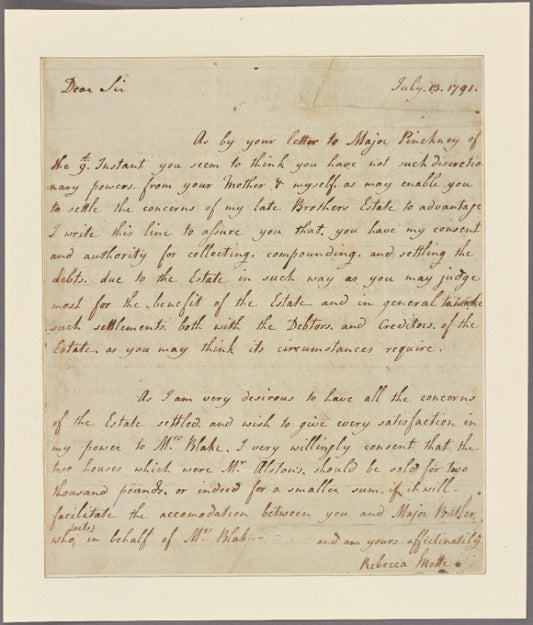 Dear Sir July. 13. 1791.
As by your letter to Major Pinckney of
the 9th. Instant you seem to think you have not such discretio
nary powers. from your Mother & myself. as may enable you
to settle the concerns of my late Brothers Estate to advantage
I write this line to assure you that. you have my consent
and authority for collecting. compounding. and settling the
debts. due to the Estate in such way as you may judge
most for the benefit of the Estate and in general to make
such settlements. both with the Debtors. and Creditors. of the
Estate. as you may think its circumstances require.
As I am very desirous to have all the concerns
of the Estate settled. and wish to give every satisfaction in
my power to Mrs. Blake. I very willingly consent that. the
two houses which were Mr. Alston's. should be sold for two
thousand pounds. or indeed for a smaller sum. if it will
facilitate the accomodation between you and Major Butler.
who acts in behalf of Mrs Blake - and am yours affectinately
Rebecca Motte.